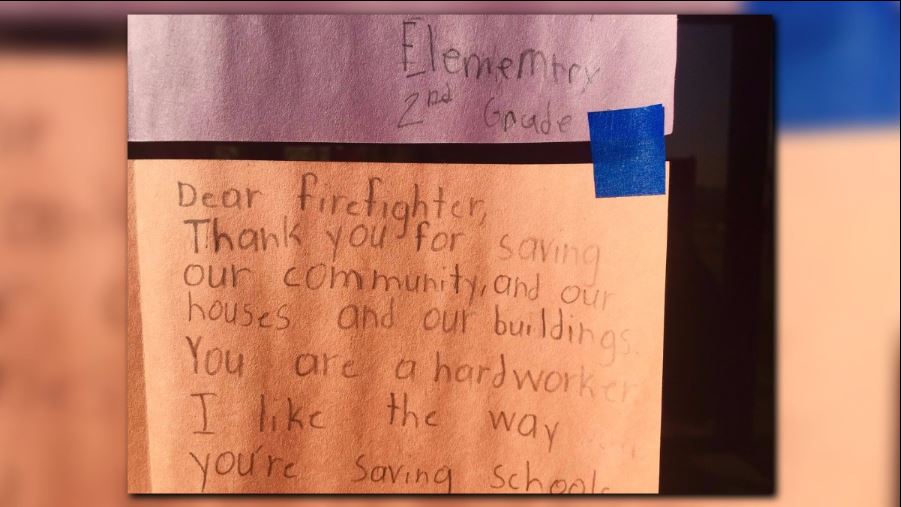 Elememtry
2nd Grade
Dear firefighter,
Thank you for saving
our community, and our
houses and our buildings.
You are a hardworker
I like the way
you're saving schools